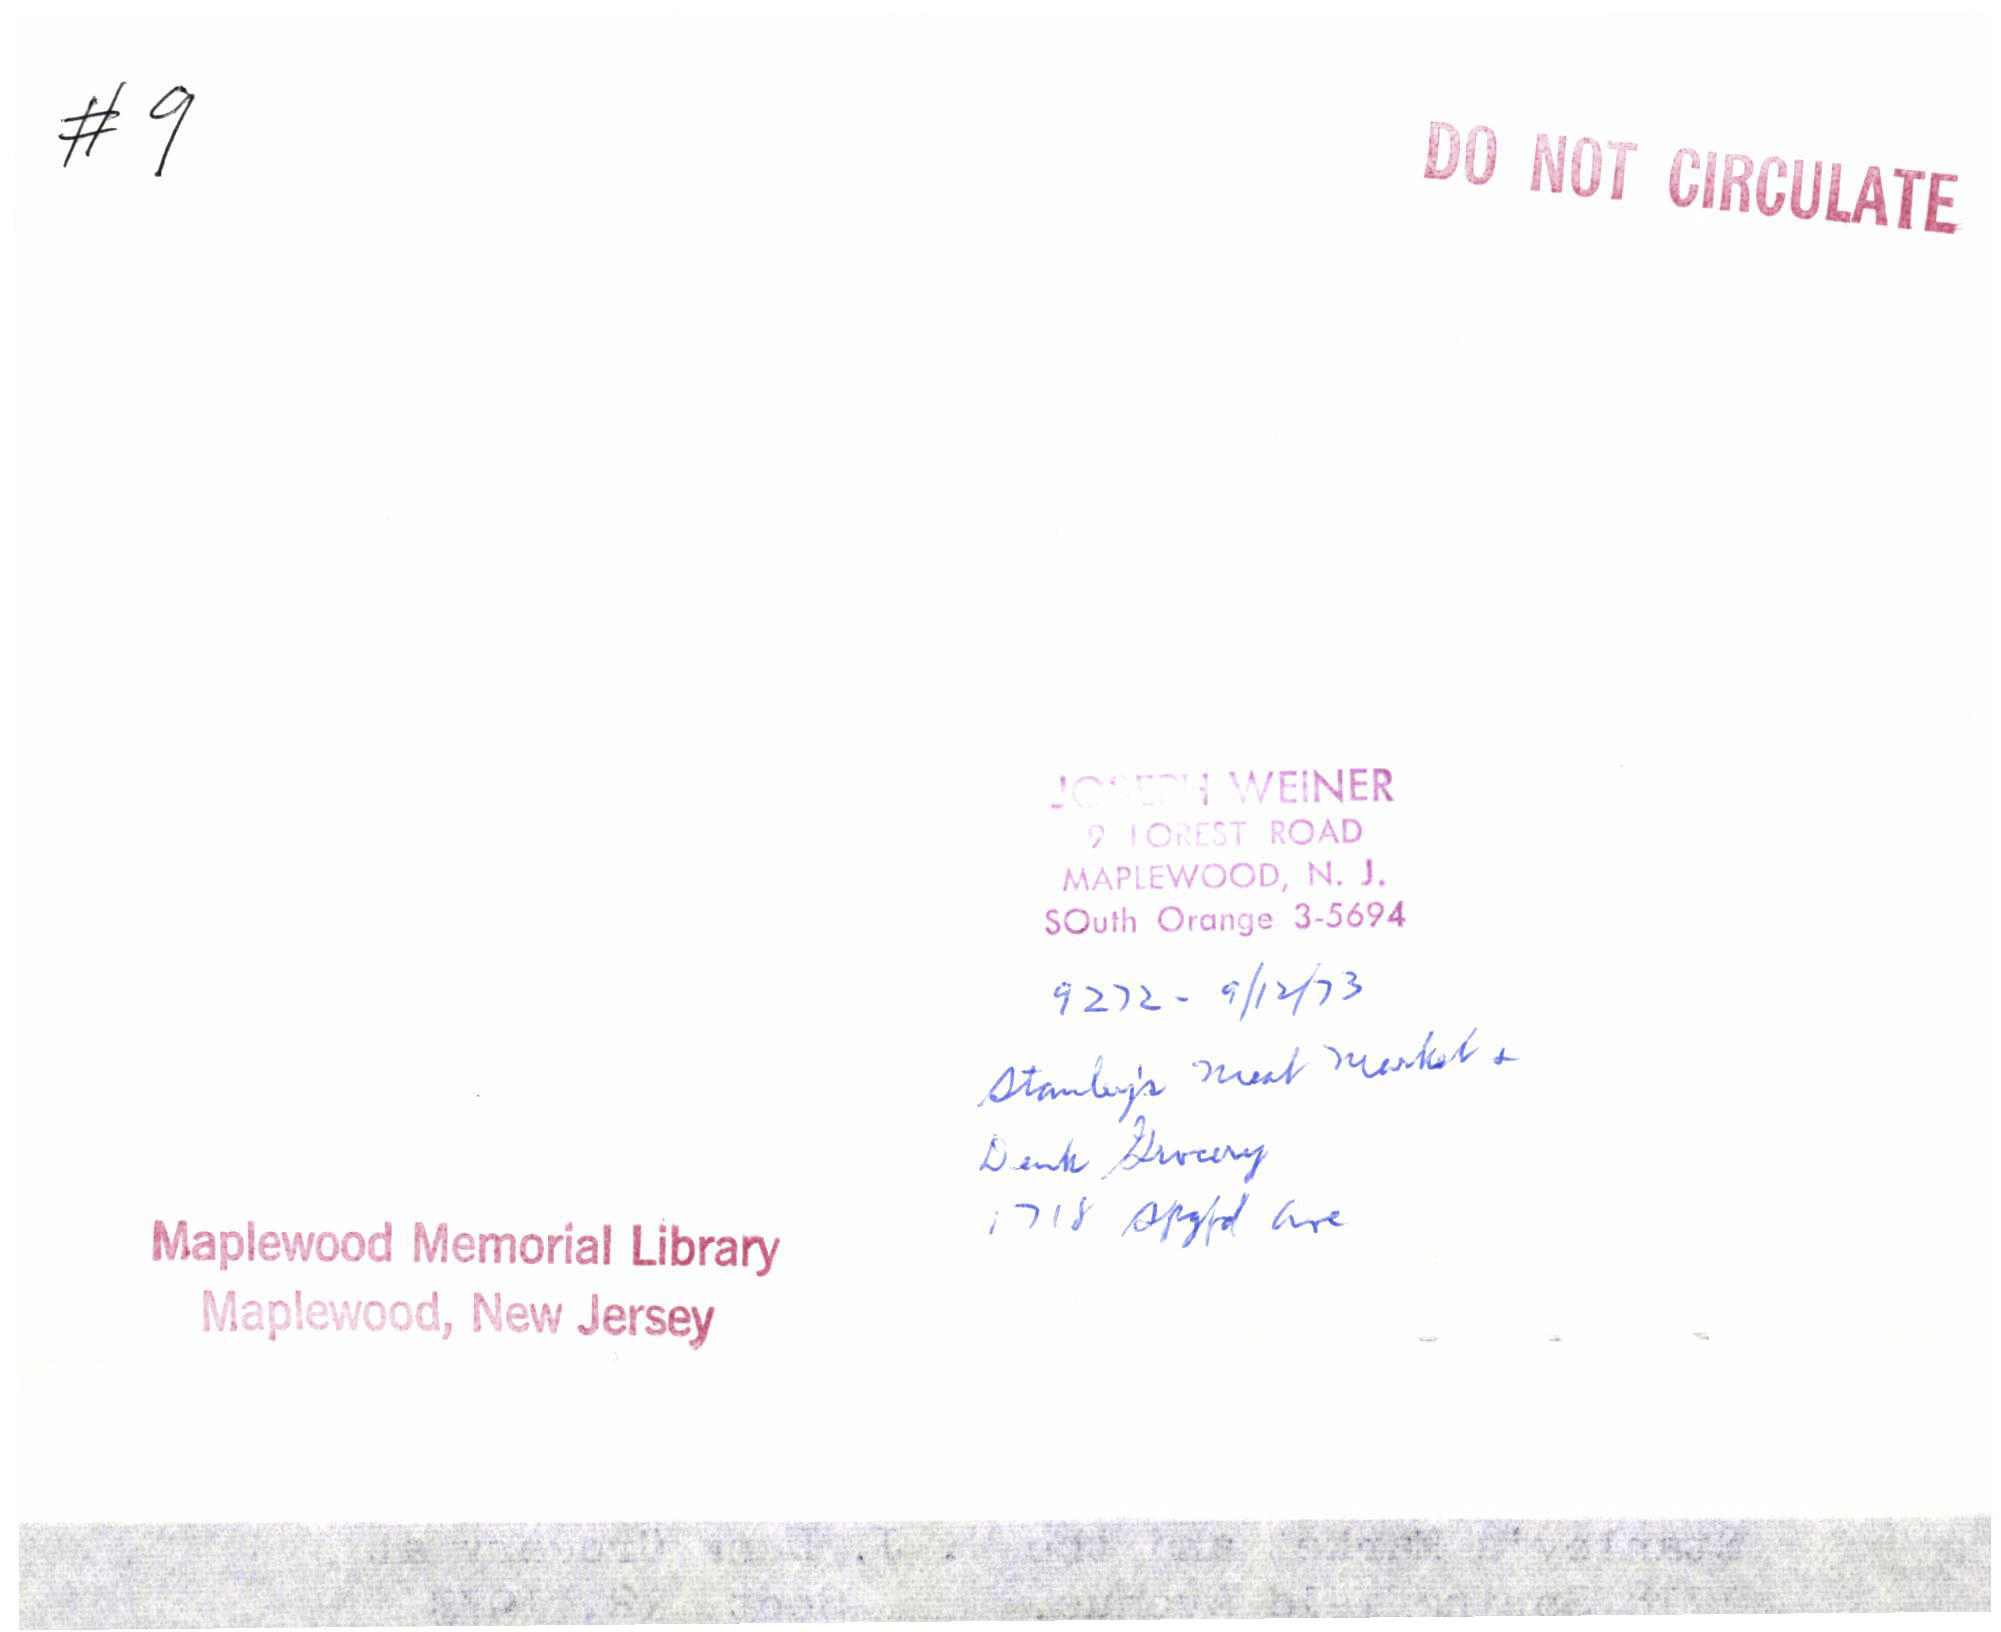 #9
DO NOT CIRCULATE
JOSEPH WEINER
9 FOREST ROAD
MAPLEWOOD, N. J.
SOuth Orange 3-5694
9272 - 9/12/73
Stanley's Meat Market &
Denk Grocery
1718 Spgfd Ave
Maplewood Memorial Library
Maplewood, New Jersey